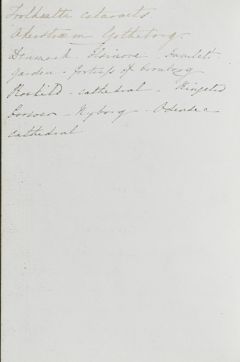 Trolhaetta cataracts
Gotheborg -
Denmark - Elsinore - Hamlet's
garden - fortress of Cronborg
Roskild - cathedral - Ringsted
Corsoer - Nyborg - Odensee
cathedral